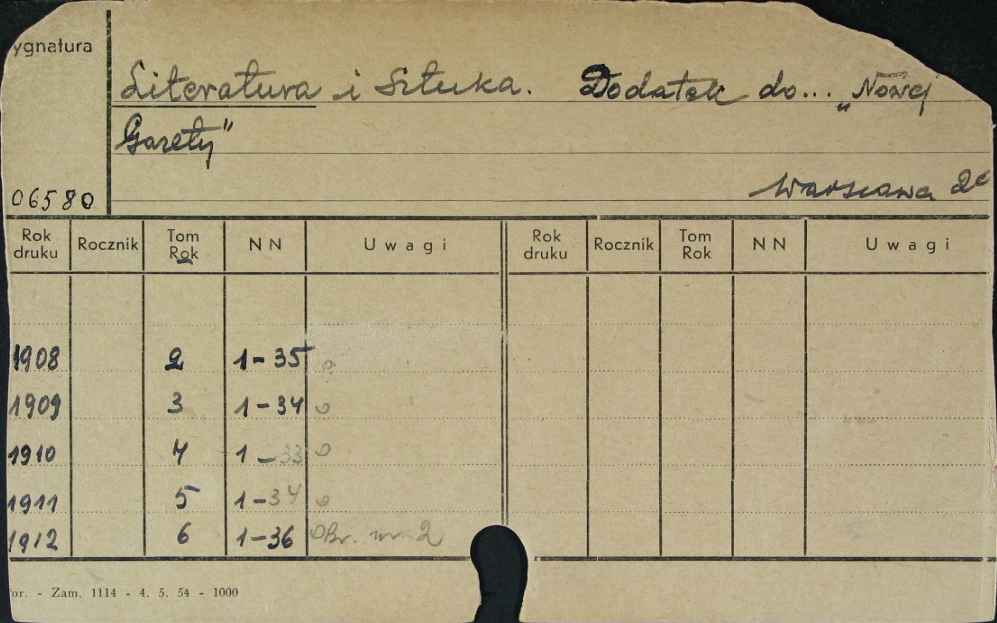 ygnatura
Literatura i Sztuka. Dodatek do... „Nowej
Gazety"
Warszawa 2°
06580
Rok druku Rocznik Tom Rok N N Uwagi Rok druku Rocznik Tom Rok N N Uwagi
1908 2 1-35
1909 3 1-34
1910 4 1-33
1911 5 1-34
1912 6 1-36 Br. nr 2
or. - Zam. 1114 - 4. 5. 54 - 1000